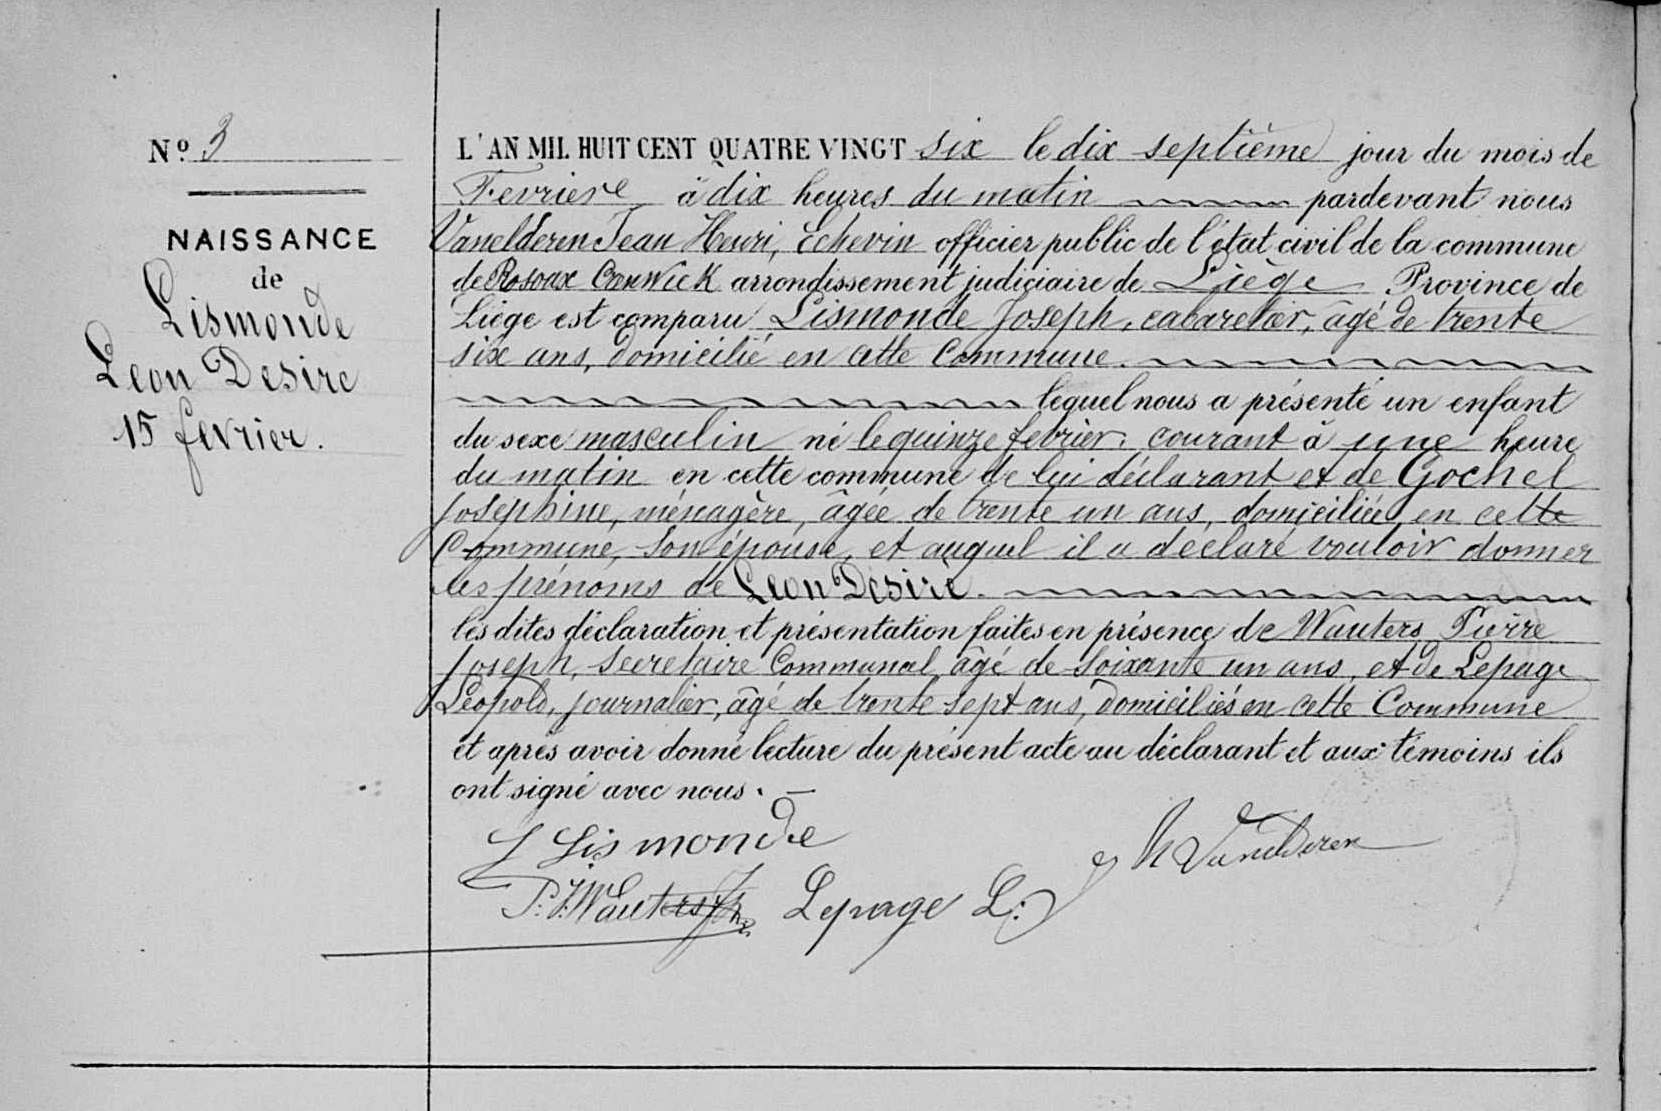 Nº 3
NAISSANCE
de
Lismonde
Leon Desire
15 fevrier.
L'AN MIL HUIT CENT QUATRE VINGT six le dix septième jour du mois de
Fevriere à dix heures du matin pardevant nous
Vanelderen Jean Henri, Echevin officier public de l'état civil de la commune
de Rosoux Crenwick arrondissement judiciaire de Liège Province de
Liège est comparu Lismonde Joseph, cabaretier, âgé de trente
six ans, domicilié en cette Commune.
lequel nous a présenté un enfant
du sexe masculin né le quinze febrier. courant à une heure
du matin en cette commune de lui déclarant et de Gochel
Josephine, ménagère, âgée de trente un ans, domiciliée en cette
Commune, son épouse, et auquel il a déclaré vouloir donner
les prénoms de Leon Désiré.
les dites déclaration et présentation faites en présence de Wauters Pierre
Joseph, Secretaire Communal, âgé de Soixante un ans, et de Lepage
Léopold, journalier, âgé de trente sept ans, domiciliés en cette Commune
et après avoir donné lecture du présent acte au déclarant et aux témoins ils
ont signé avec nous.
J Lismonde
J H Vanelderen
P. J. Wauters
Lepage L.